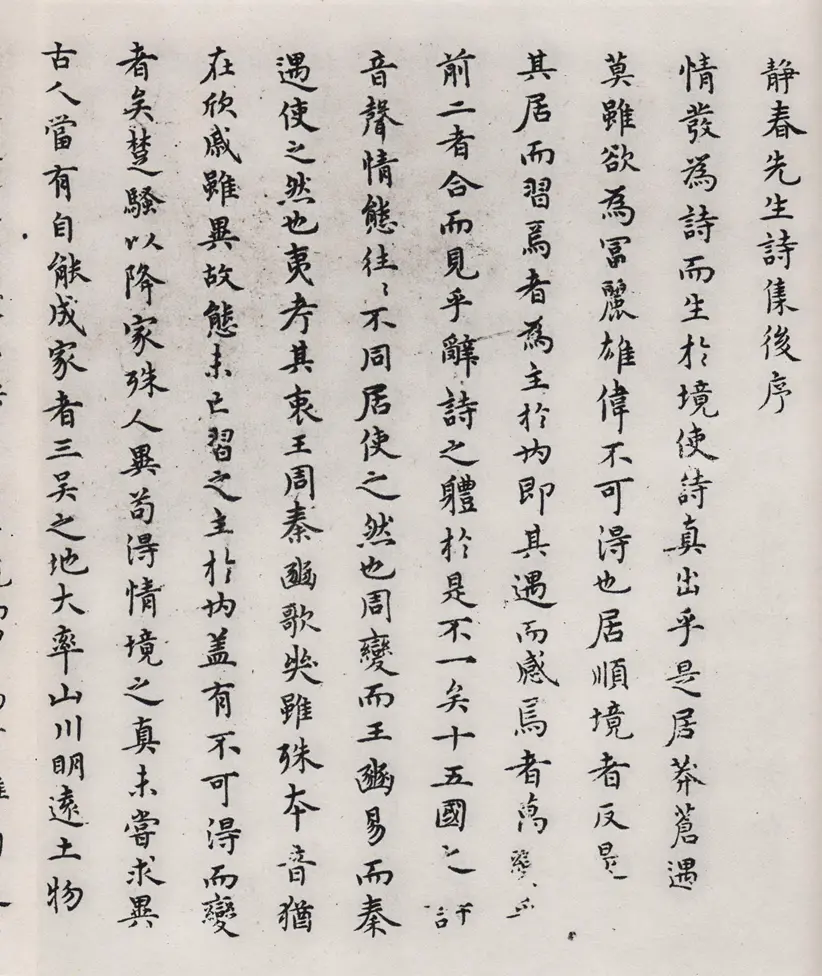 靜春先生詩集後序
情發為詩而生於境使詩真出乎是居莽蒼遇
莫雖欲為冨麗雄偉不可得也居順境者反是
其居而習焉者為主於内即其遇而感焉者萬變
前二者合而見乎辭詩之體於是不一矣十五國之詩
音聲情態往〻不同居使之然也周變而王豳易而秦
遇使之然也夷考其衷王周秦豳歌哭雖殊本音猶
在欣戚雖異故態未亡習之主於内盖有不可得而變
者矣楚騷以降家殊人異苟得情境之真未嘗求異
古人當有自能成家者三吴之地大率山川明遠土物